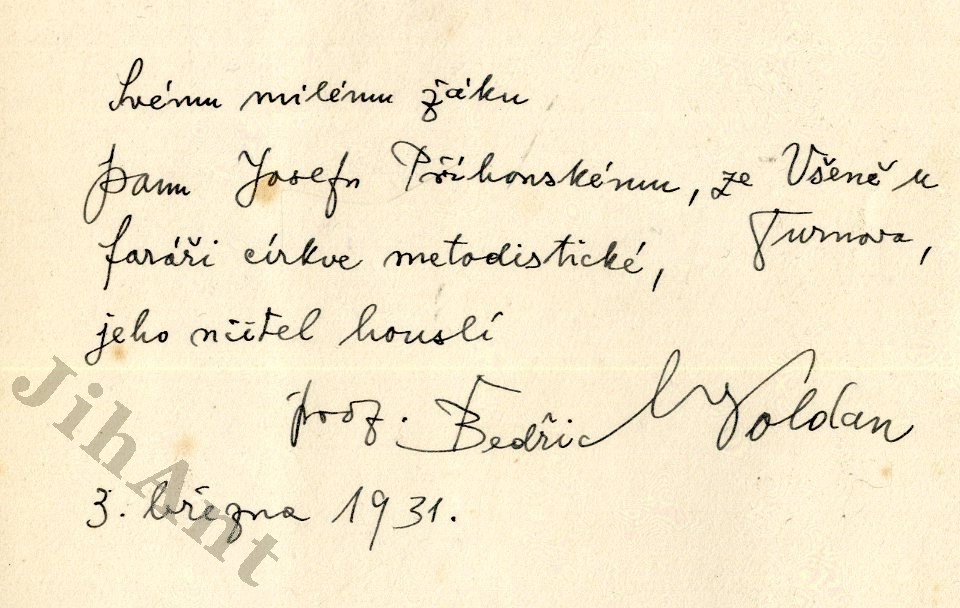 Svému milému žáku
panu Josefu Příhonskému, ze Všeně u
Turnova,
faráři církve metodistické,
jeho učitel houslí
prof. Bedřic Voldan
3. března 1931.
JihAnt